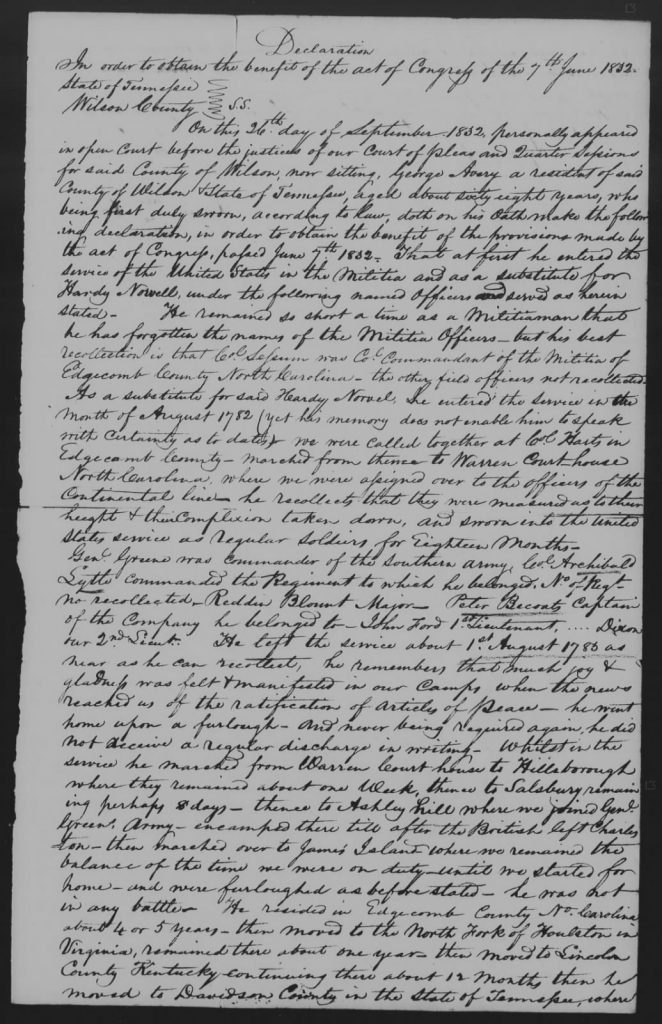 Declaration
In order to obtain the benefit of the act of Congress of the 7th June 1832.
State of Tennessee
Wilson County } SS.
On this 26th day of September 1832, personally appeared
in open Court before the justices of our Court of Pleas and Quarter Sessions
for said County of Wilson, now sitting, George Avery a resident of said
County of Wilson & State of Tennessee, aged about sixty eight years, who
being first duly sworn, according to law, doth on his Oath make the follow
ing declaration, in order to obtain the benefit of the provisions made by
the act of Congress, passed June 7th 1832 - That at first he entered the
service of the United States in the Militia and as a substitute for
Hardy Norvell, under the following named Officers and served as herein
stated - He remained so short a time as a Militiaman that
he has forgotten the names of the Militia Officers - but his best
recollection is that Col. Sessum was Col. Commandant of the Militia of
Edgecomb County North Carolina - the other field officers not recollected
As a substitute for said Hardy Norvel, he entered the service in the
month of August 1782 (yet his memory does not enable him to speak
with certainty as to dates) we were called together at Col Harts in
Edgecamb County - marched from thence to Warren Court house
North Carolina, where we were assigned over to the officers of the
Continental line - he recollects that they were measured as to their
height & their Complexion taken down, and sworn into the United
States service as regular soldiers for Eighteen Months -
Genl. Greene was commander of the Southern army, Col. Archibald
Lytle commanded the Regiment to which he belonged, No. of Regt
no recollected - Redden Blount Major - Peter Captain
of the Company he belonged to - John Ford 1st Lieutenant, .... Dixon
our 2nd Lieut. He left the service about 1st August 1783 as
near as he can recollect, he remembers that much joy &
gladness was felt & manifested in our Camps when the news
reached us of the ratification of Articles of Peace - he went
home upon a furlough - and never being required again, he did
not receive a regular discharge in writing - Whilst in the
service he marched from Warren Court house to Hillsborough
where they remained about one Week, thence to Salsbury remain
ing perhaps 8 days - thence to Ashley hill where we joined Genl.
Greens Army - encamped there till after the British left Charles
ton - then marched over to James Island where we remained the
balance of the time we were on duty - until we started for
home - and were furloughed as before stated - he was not
in any battle - He resided in Edgecomb County No. Carolina
about 4 or 5 years - then moved to the North Fork of Houlston in
Virginia, remained there about one year - then moved to Lincoln
County Kentucky continuing there about 12 months then he
moved to Davidson County in the State of Tennessee, where